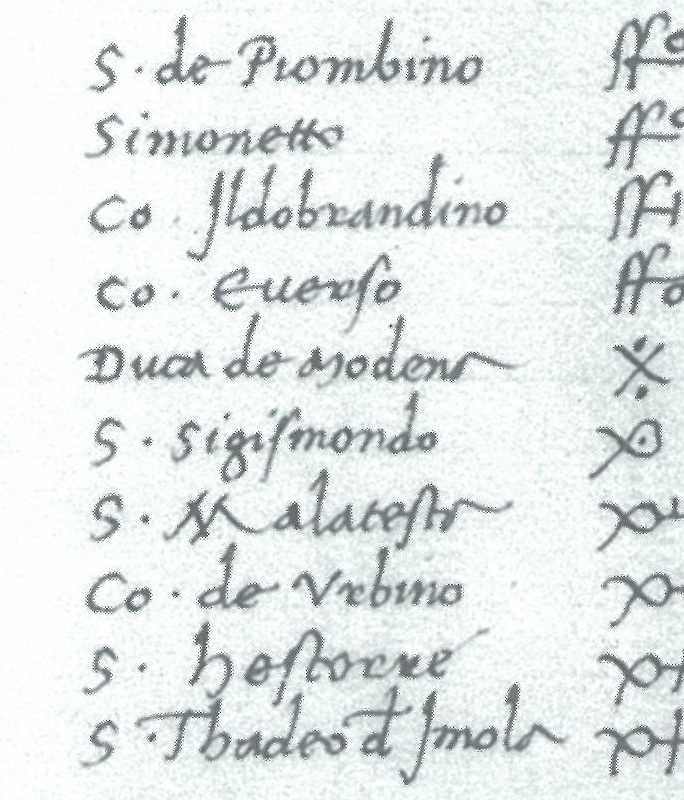 S. de Piombino
Simonetto
Co. Ildobrandino
Co. Euerso
Duca de Modena
S. Sigismondo
S. Malatesta
Co. de Vrbino
S. hestorre
S. Thadeo d Imola